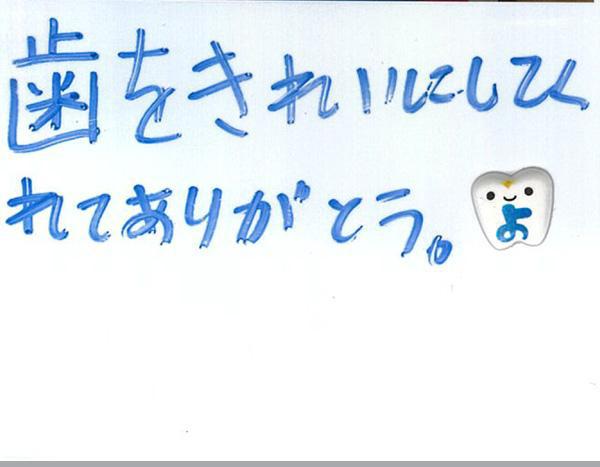 歯をきれいにしてく
れてありがとう。
よ